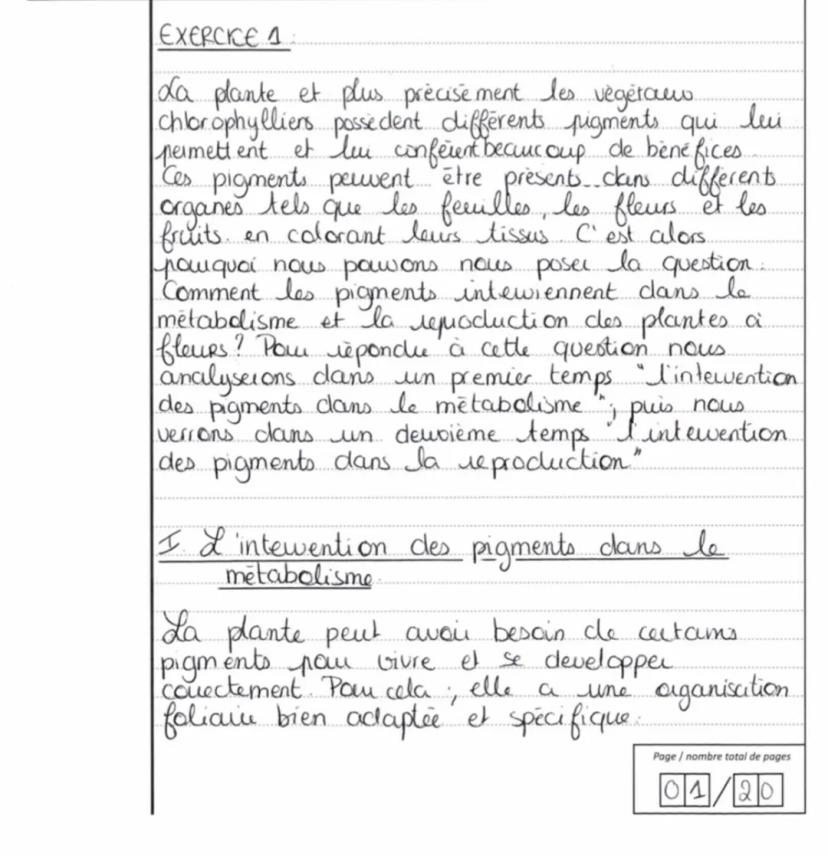 EXERCICE 1 :
La plante et plus précisément les végétaux
chlorophylliers possèdent différents pigments qui lui
permettent et lui confèrent beaucoup de bénéfices.
Ces pigments peuvent être présents dans différents
organes tels que les feuilles, les fleurs et les
fruits en colorant leurs tissus. C'est alors
pourquoi nous pouvons nous poser la question :
Comment les pigments interviennent dans le
métabolisme et la reproduction des plantes à
fleurs ? Pour répondre à cette question nous
analyserons dans un premier temps "l'intervention
des pigments dans le métabolisme" ; puis nous
verrons dans un deuxième temps "l'intervention
des pigments dans la reproduction"
I. L'intervention des pigments dans le
métabolisme.
La plante peut avoir besoin de certains
pigments pour vivre et se developper
correctement. Pour cela ; elle a une organisation
foliaire bien adaptée et spécifique.
Page / nombre total de pages
01/20